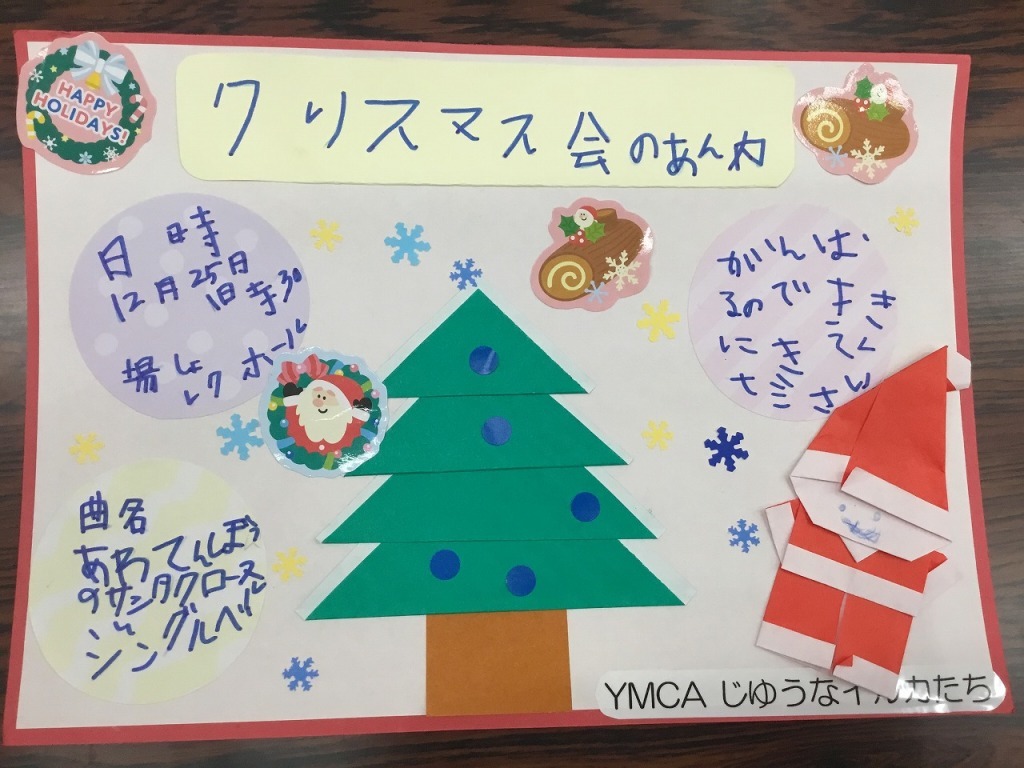 HAPPY
HOLIDAYS!
クリスマス会のあん内
日時
12月25日
1日寺30
場しょ
レクホール
がんば
るのでき
にきてく
ださい
曲名
あわてんぼう
のサンタクロース
ジングルベル
YMCA じゆうなイルカたち